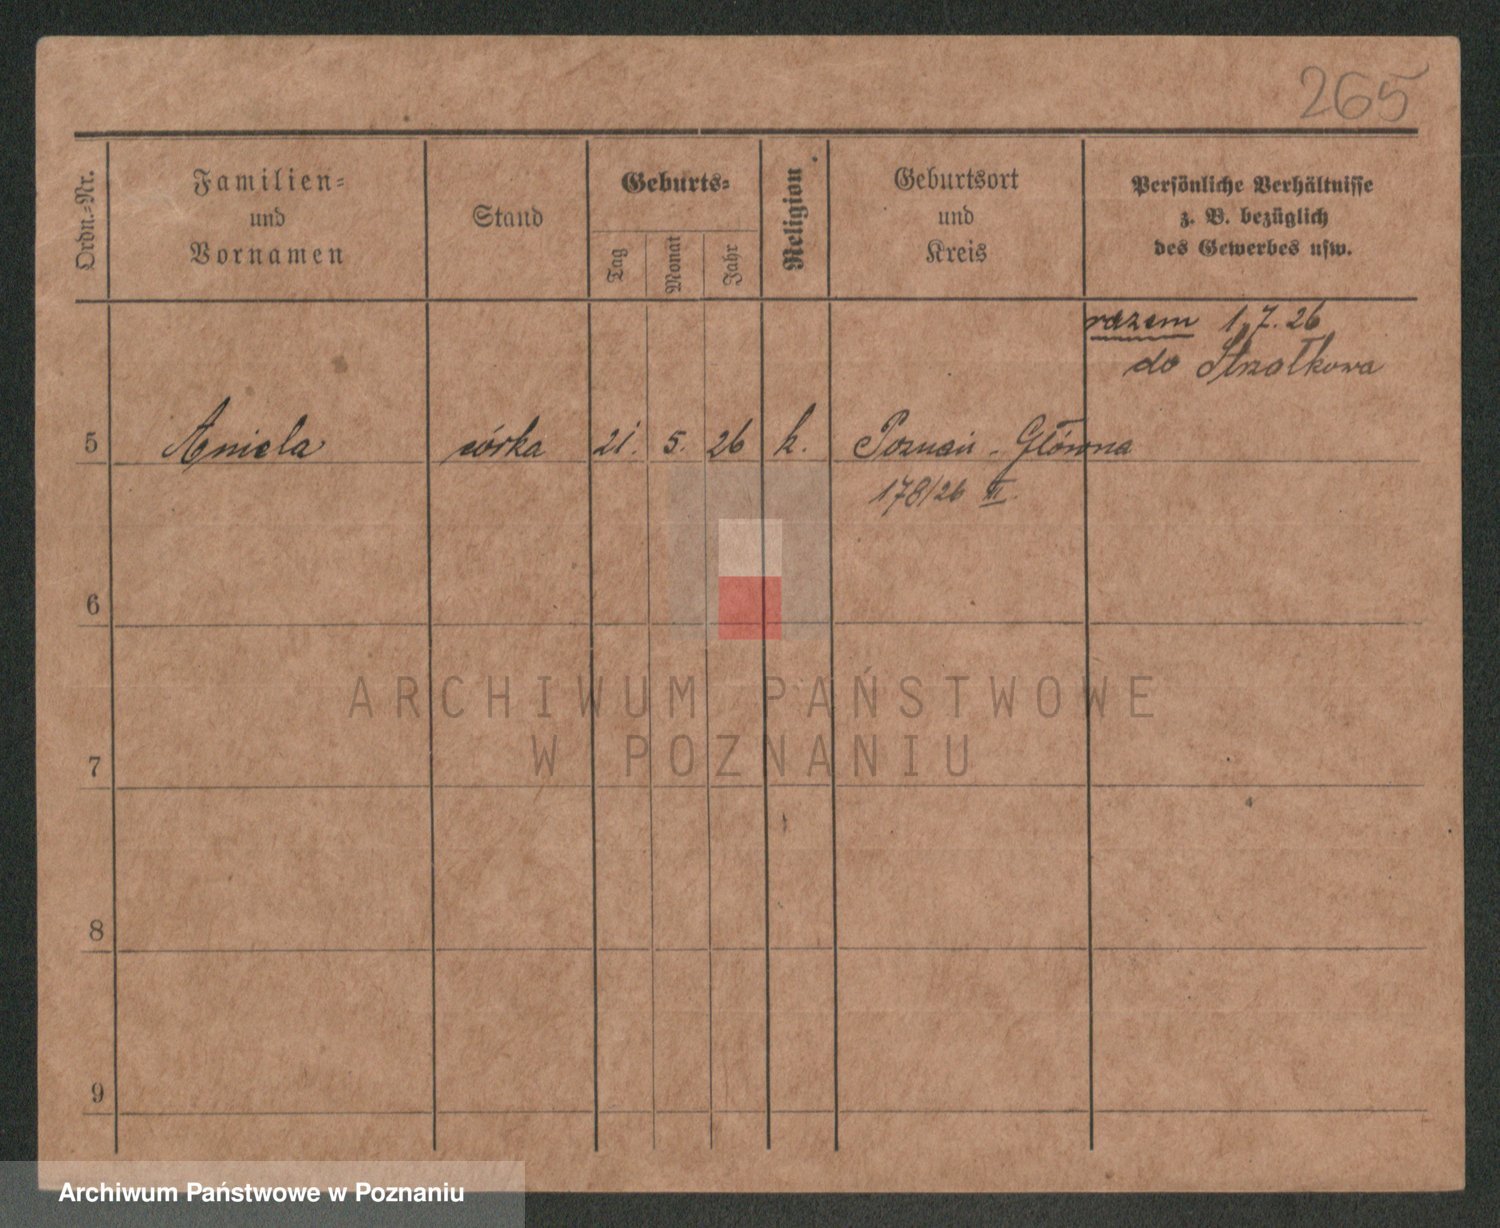 265
Ordn.-Nr.
Familien-
und
Vornamen
Stand
Geburts-
Tag
Monat
Jahr
Religion
Geburtsort
und
Kreis
Persönliche Verhältnisse
z. B. bezüglich
des Gewerbes usw.
razem 1.7.26
do Strzałkowa
5 Aniela córka 21. 5. 26 k. Poznań - Główna
178/26 III.
6
7
8
9
ARCHIWUM PAŃSTWOWE
W POZNANIU
Archiwum Państwowe w Poznaniu